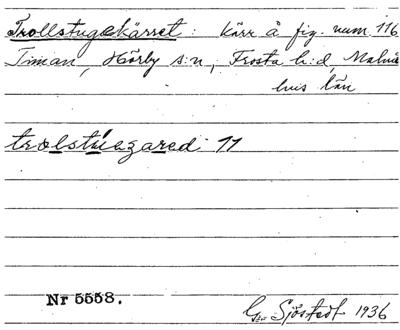 Trollstugekärret: Kärr å fig. num 116
Timan, Hörby s:n, Frosta h:d, Malmö
hus län
trolstuegared 11
Nr 5558.
G. Sjöstedt 1936